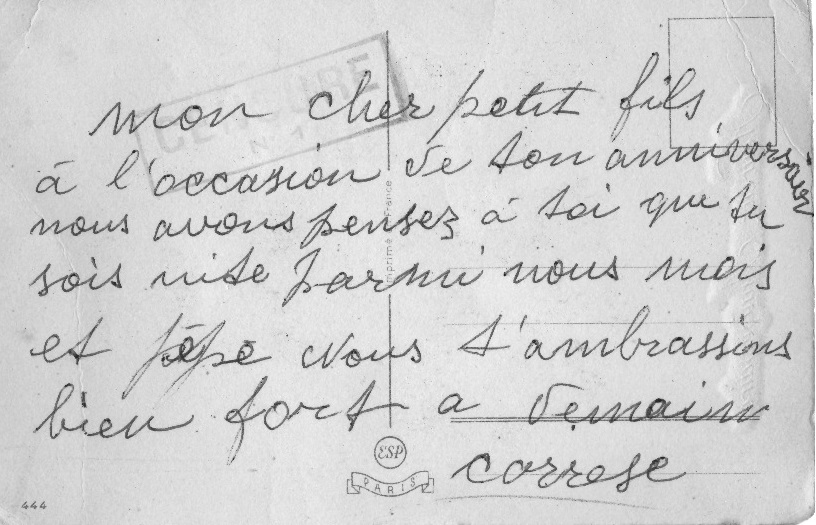 CENSURE
N 1
mon cher petit fils
à l'occasion de ton anniversair
nous avons pensez à toi que tu
sois vite parmi nous mois
et pépé nous t'ambrassons
bien fort a demain
correse
Imprimé en France
ESP
PARIS
444